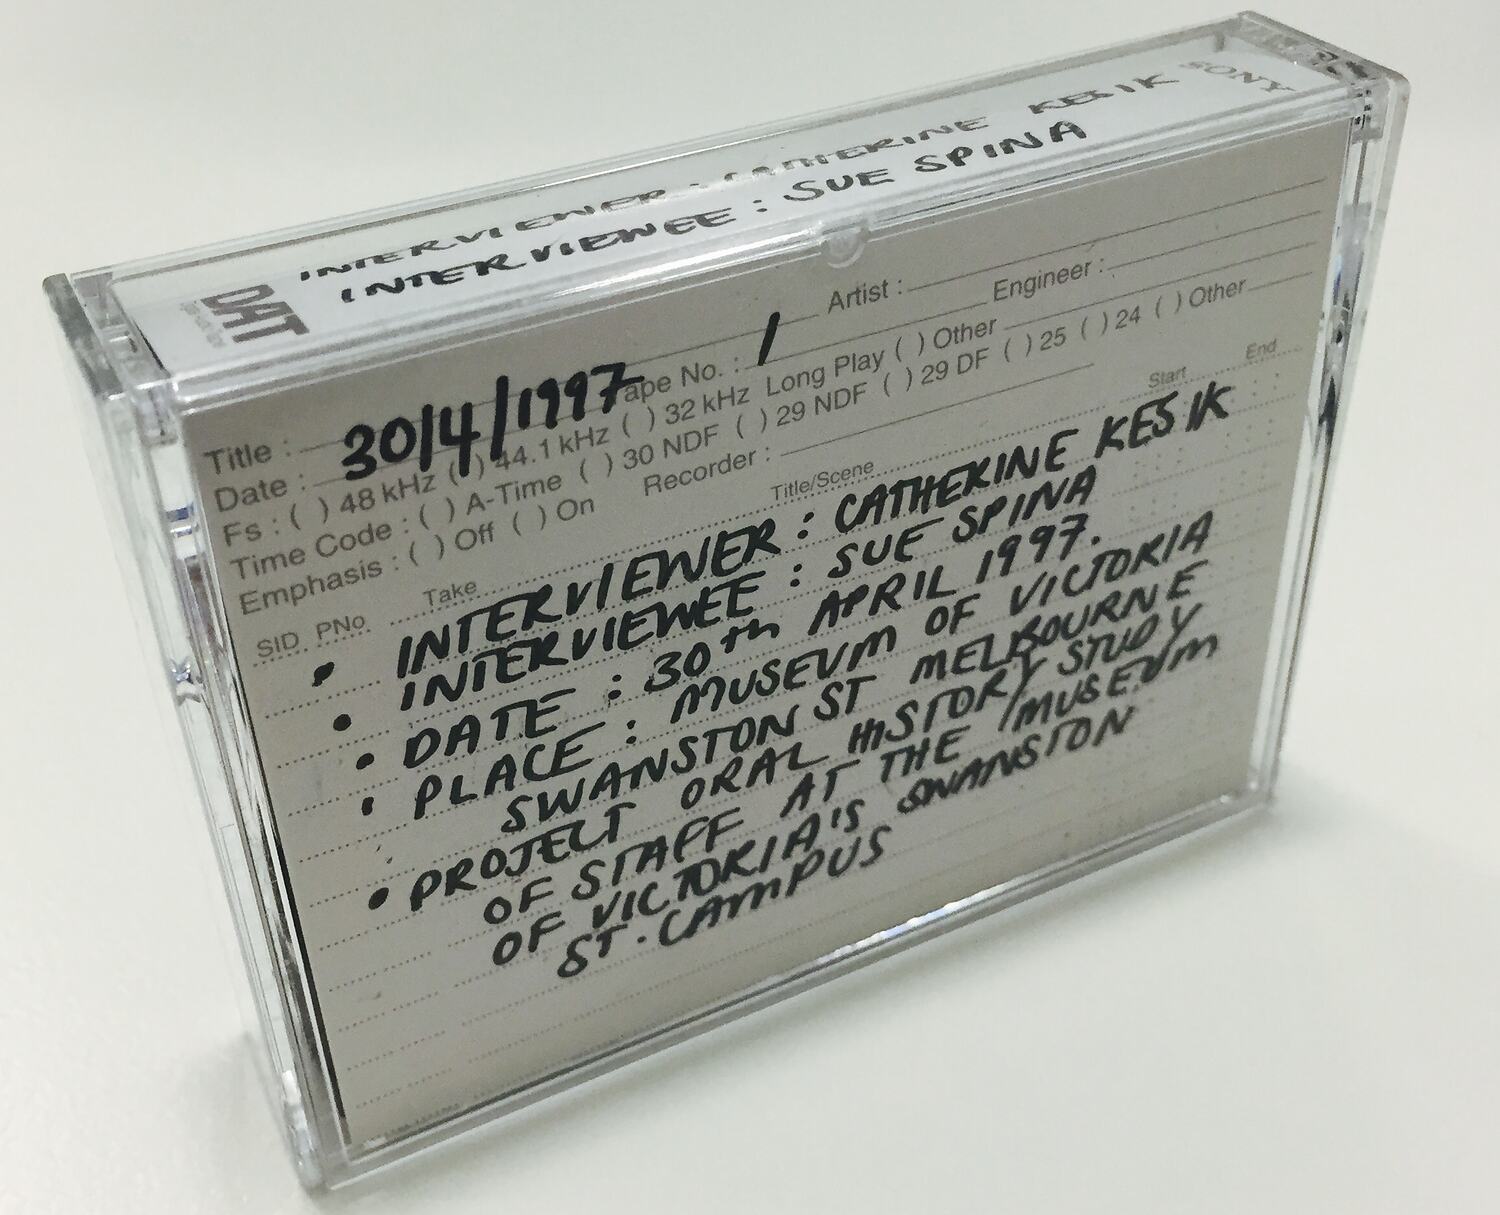 INTERVIEWER : CATHERINE KESIK
INTERVIEWEE : SUE SPINA
SONY
DAT
Title : Artist :
Date : 30/4/1997 Tape No. : 1 Engineer :
Fs : ( ) 48 kHz ( ) 44.1 kHz ( ) 32 kHz Long Play ( ) Other
Time Code : ( ) A-Time ( ) 30 NDF ( ) 29 NDF ( ) 29 DF ( ) 25 ( ) 24 ( ) Other
Emphasis : ( ) Off ( ) On Recorder :
SID PNo Take Title/Scene Start End
• INTERVIEWER : CATHERINE KESIK
• INTERVIEWEE : SUE SPINA
• DATE : 30th APRIL 1997.
• PLACE : MUSEUM OF VICTORIA
SWANSTON ST MELBOURNE
• PROJECT ORAL HISTORY STUDY
OF STAFF AT THE MUSEUM
OF VICTORIA'S SWANSTON
ST. CAMPUS